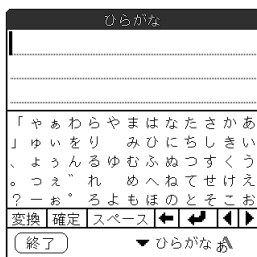 ひらがな
「ゃぁわらやまはなたさかあ
」ゅぃをり みひにちしきい
、ょぅんるゆむふぬつすくう
。っぇ゛れ めへねてせけえ
?ーぉ゜ろよもほのとそこお
変換 確定 スペース ← ↵ ◀ ▶
終了 ▼ ひらがな あA